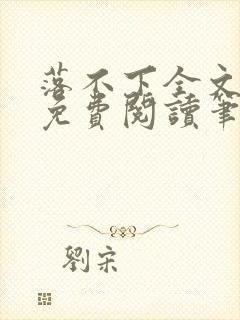 落不下全文
免費閱讀筆
劉宋